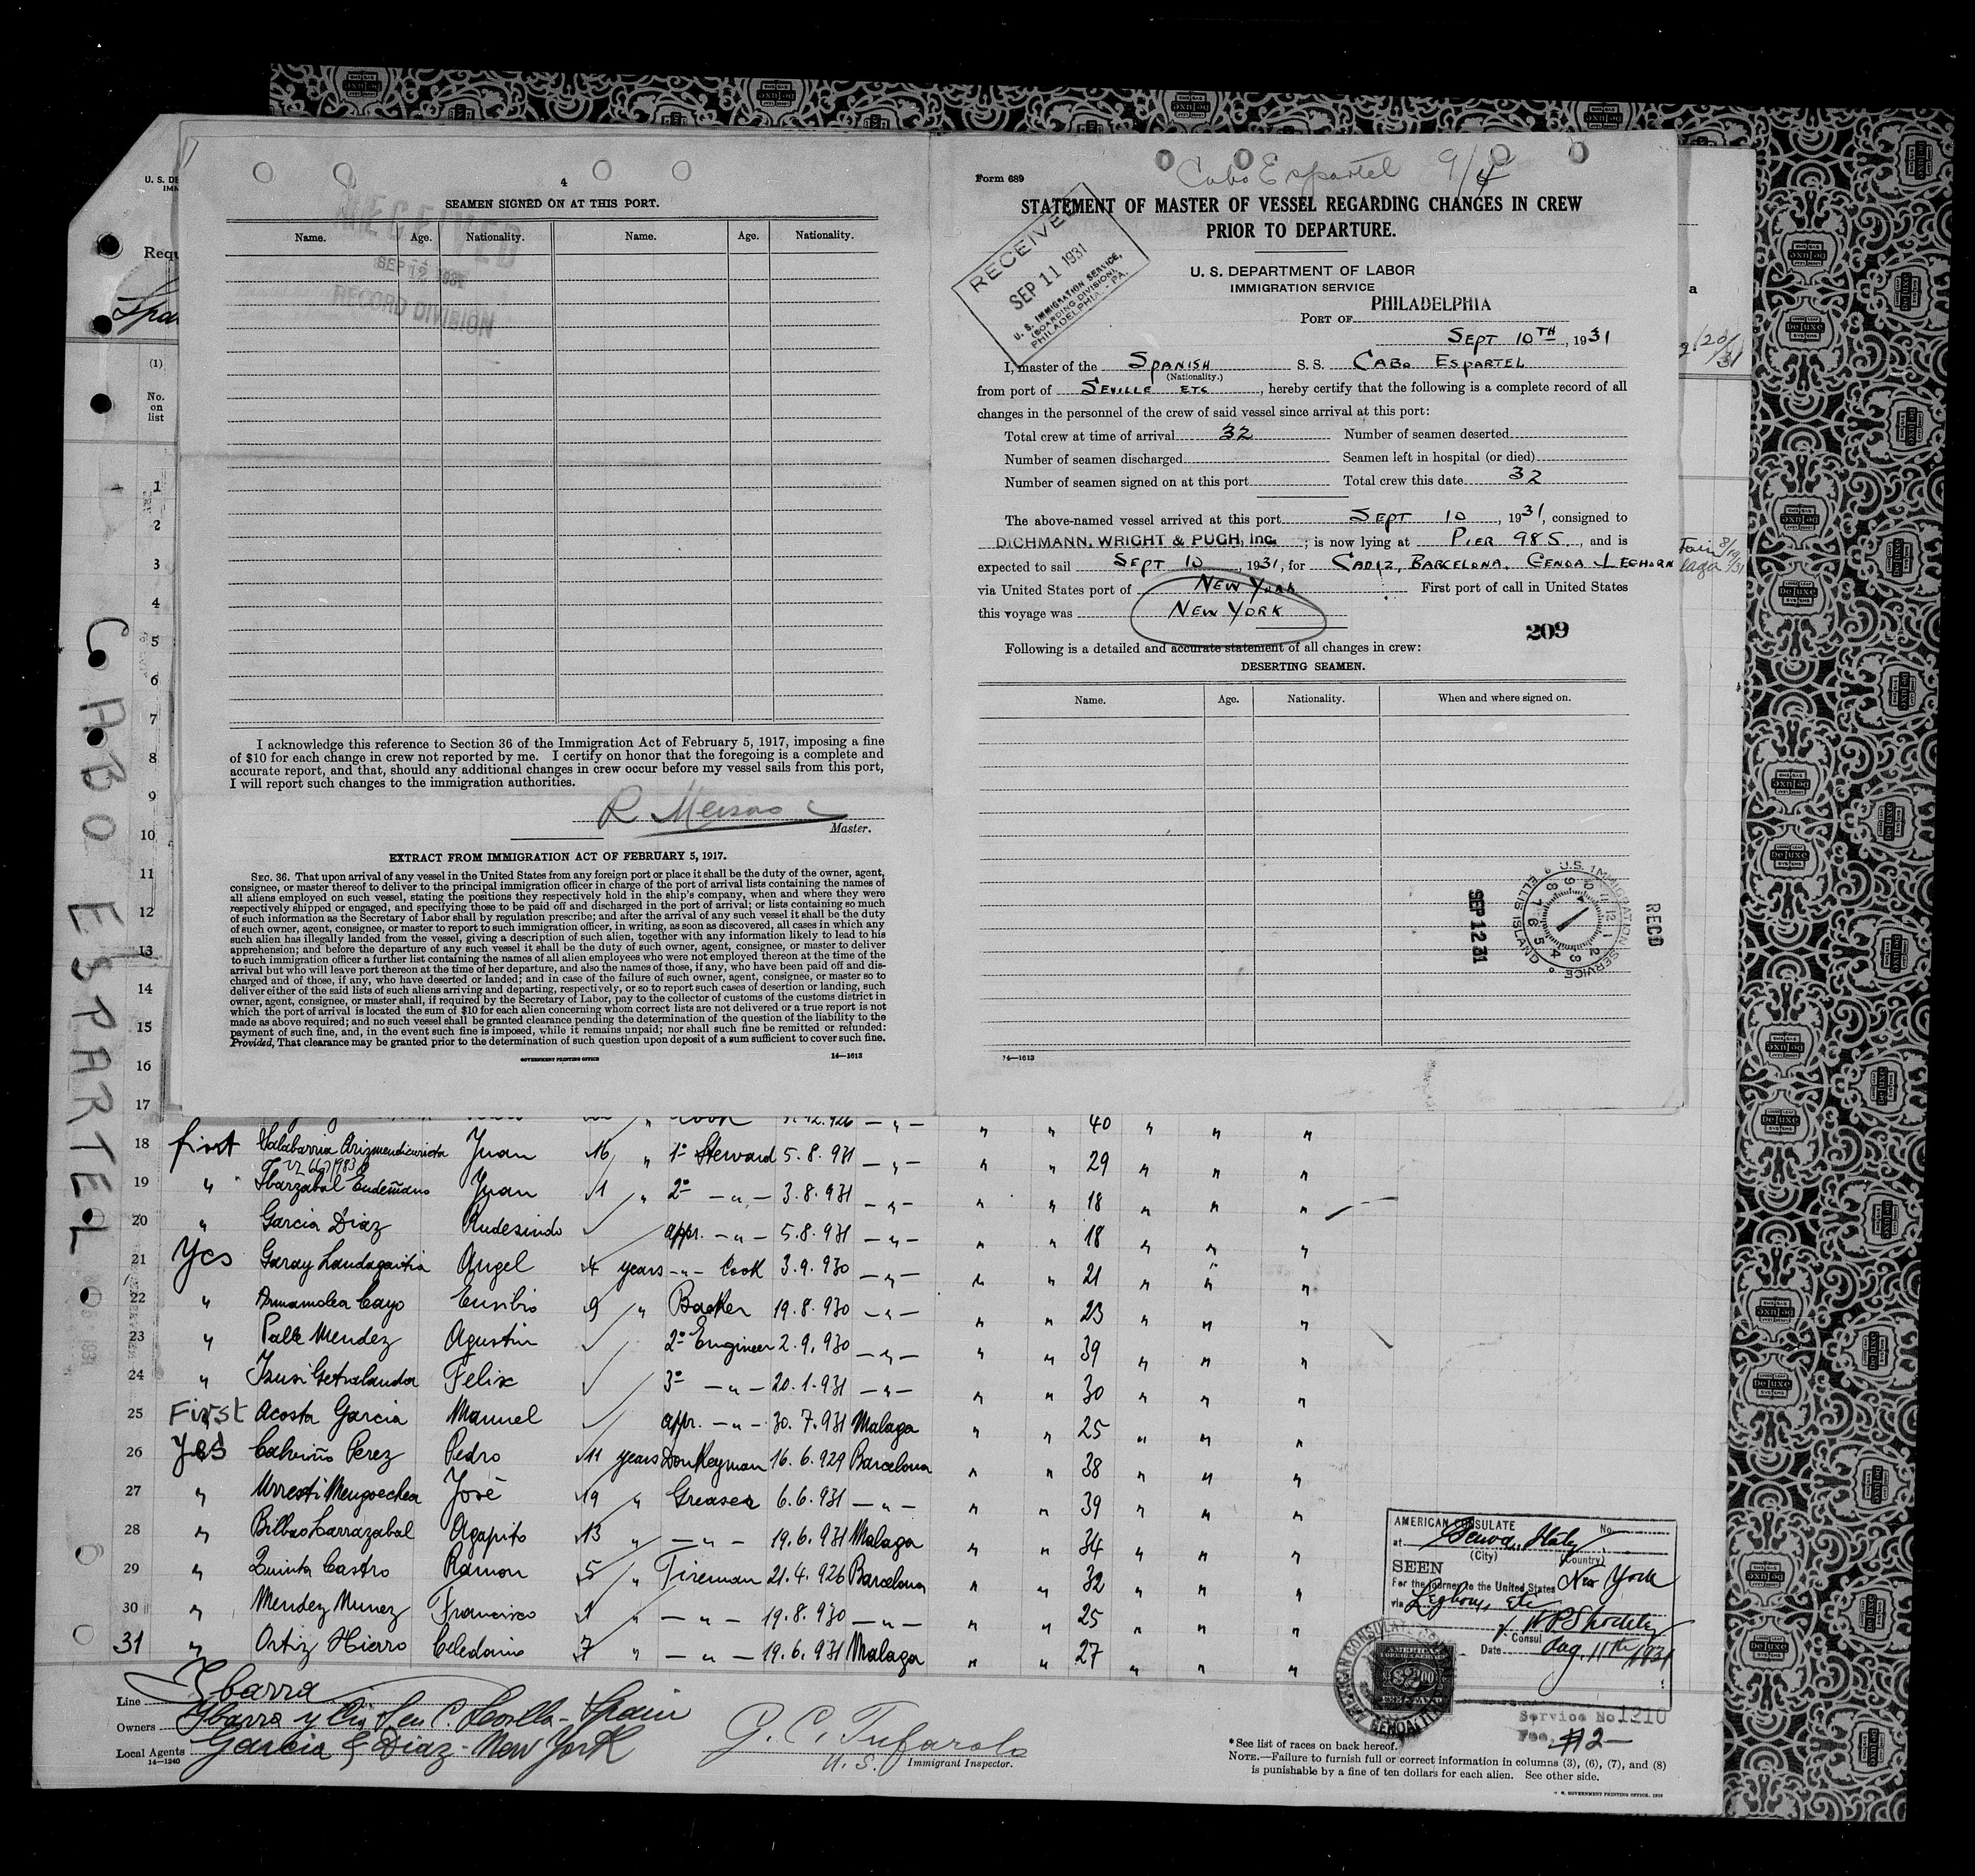 4
SEAMEN SIGNED ON AT THIS PORT.
Name. Age. Nationality. Name. Age. Nationality.
RECEIVED
SEP 12 1931
RECORD DIVISION
I acknowledge this reference to Section 36 of the Immigration Act of February 5, 1917, imposing a fine
of $10 for each change in crew not reported by me. I certify on honor that the foregoing is a complete and
accurate report, and that, should any additional changes in crew occur before my vessel sails from this port,
I will report such changes to the immigration authorities.
Master.
EXTRACT FROM IMMIGRATION ACT OF FEBRUARY 5, 1917.
SEC. 36. That upon arrival of any vessel in the United States from any foreign port or place it shall be the duty of the owner, agent,
consignee, or master thereof to deliver to the principal immigration officer in charge of the port of arrival lists containing the names of
all aliens employed on such vessel, stating the positions they respectively hold in the ship's company, when and where they were
respectively shipped or engaged, and specifying those to be paid off and discharged in the port of arrival; or lists containing so much
of such information as the Secretary of Labor shall by regulation prescribe; and after the arrival of any such vessel it shall be the duty
of such owner, agent, consignee, or master to report to such immigration officer, in writing, as soon as discovered, all cases in which any
such alien has illegally landed from the vessel, giving a description of such alien, together with any information likely to lead to his
apprehension; and before the departure of any such vessel it shall be the duty of such owner, agent, consignee, or master to deliver
to such immigration officer a further list containing the names of all alien employees who were not employed thereon at the time of the
arrival but who will leave port thereon at the time of her departure, and also the names of those, if any, who have been paid off and dis-
charged and of those, if any, who have deserted or landed; and in case of the failure of such owner, agent, consignee, or master so to
deliver either of the said lists of such aliens arriving and departing, respectively, or so to report such cases of desertion or landing, such
owner, agent, consignee, or master shall, if required by the Secretary of Labor, pay to the collector of customs of the customs district in
which the port of arrival is located the sum of $10 for each alien concerning whom correct lists are not delivered or a true report is not
made as above required; and no such vessel shall be granted clearance pending the determination of the question of the liability to the
payment of such fine, and, in the event such fine is imposed, while it remains unpaid; nor shall such fine be remitted or refunded:
Provided, That clearance may be granted prior to the determination of such question upon deposit of a sum sufficient to cover such fine.
GOVERNMENT PRINTING OFFICE 14—1613
Cabo Espartel 9/4
Form 689
STATEMENT OF MASTER OF VESSEL REGARDING CHANGES IN CREW
PRIOR TO DEPARTURE.
RECEIVED
SEP 11 1931
U. S. IMMIGRATION SERVICE,
(BOARDING DIVISION),
PHILADELPHIA, - PA.
U. S. DEPARTMENT OF LABOR
IMMIGRATION SERVICE
PORT OF PHILADELPHIA
SEPT 10TH, 1931
I, master of the SPANISH S. S. CABO ESPARTEL
(Nationality.)
from port of SEVILLE ETC, hereby certify that the following is a complete record of all
changes in the personnel of the crew of said vessel since arrival at this port:
Total crew at time of arrival 32 Number of seamen deserted
Number of seamen discharged Seamen left in hospital (or died)
Number of seamen signed on at this port Total crew this date 32
The above-named vessel arrived at this port SEPT 10, 1931, consigned to
DICHMANN, WRIGHT & PUGH, Inc. ; is now lying at PIER 98S, and is
expected to sail SEPT 10, 1931, for CADIZ, BARCELONA, GENOA LEGHORN
via United States port of NEW YORK First port of call in United States
this voyage was NEW YORK
209
Following is a detailed and accurate statement of all changes in crew:
DESERTING SEAMEN.
Name. Age. Nationality. When and where signed on.
U.S. IMMIGRATION SERVICE
ELLIS ISLAND
SEP 12 31
RECD
14—1613
CABO ESPARTEL
(1)
No.
on
list
1
2
3
4
5
6
7
8
9
10
11
12
13
14
15
16
17 Cook 926 — " — " " 40 " " "
18 first Salabarria Arizmendiurieta Juan 16 " 1º Steward 5.8.931 — " — " " 29 " " "
19 " Ibarzabal Juan 1 " 2º — " — 3.8.931 — " — " " 18 " " "
20 " Garcia Diaz Rudesindo appr. — " — 5.8.931 — " — " " 18 " " "
21 Yes Garay Landagaitia Angel 4 years — " — Cook 3.9.930 — " — " " 21 " " "
22 " Cayo Eusibio 9 " Backer 19.8.930 — " — " " 23 " " "
23 " Mendez Agustin 2º Engineer 2.9.930 — " — " " 39 " " "
24 " Felix 3º — " — 20.1.931 — " — " " 30 " " "
25 First Acosta Garcia Manuel appr. — " — 30.7.931 Malaga " " 25 " " "
26 Yes Calviño Perez Pedro 11 years Donkeyman 16.6.929 Barcelona " " 38 " " "
27 " Urresti Mengoechea José 19 " Greaser 6.6.931 — " — " " 39 " " "
28 " Bilbao Larrazabal Agapito 13 " — " — 19.6.931 Malaga " " 34 " " "
29 " Quinta Castro Ramon 5 " Fireman 21.4.926 Barcelona " " 32 " " "
30 " Mendez Munez Francisco 1 " — " — 19.8.930 — " — " " 25 " " "
31 " Ortiz Hierro Celedonio 7 " — " — 19.6.931 Malaga " " 27 " " "
AMERICAN CONSULATE No.
at Genoa, Italy
(City) (Country)
SEEN
For the journey to the United States New York
via Leghorn, etc
Consul
Date Aug. 11th 1931
Service No. 1210
Fee $2—
Line Ibarra
Owners Ybarra y Cia Sevilla - Spain
Local Agents Garcia & Diaz - New York
14—1240
G. C. Tufarolo
U. S. Immigrant Inspector.
*See list of races on back hereof.
NOTE.—Failure to furnish full or correct information in columns (3), (6), (7), and (8)
is punishable by a fine of ten dollars for each alien. See other side.
U. S. GOVERNMENT PRINTING OFFICE